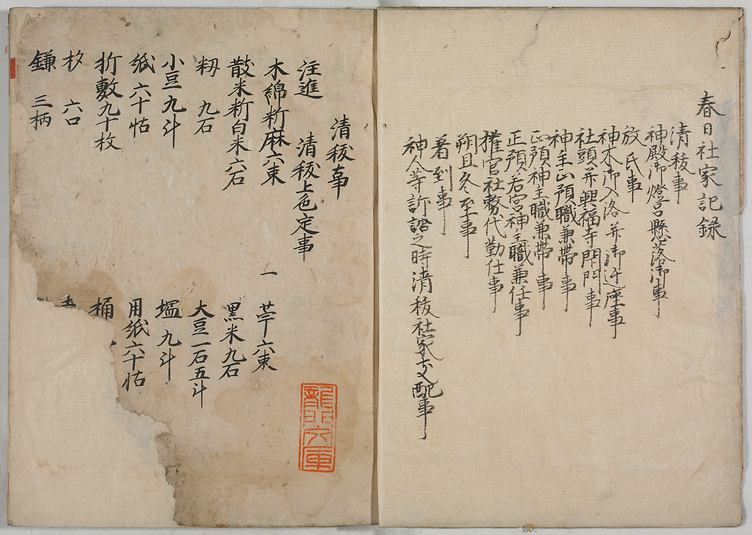 春日社家記録
清秡事
神殿御燈呂懸落御事
放氏事
神木御入洛并御近座事
社頭并興福寺閇門事
神主正預職兼帯事
正預神主職兼帯事
正預若宮神主職兼任事
権官社務代勤仕事
朔旦冬至事
着到事
神人等訴訟之時清秡社家支配事
清秡事
注進 清秡上色定事
一
木綿析麻六束 苧六束
散米析白米六石 黒米九石
籾 九石 大豆一石五斗
小豆九斗 塩九斗
紙六十帖 用紙六十帖
折敷九十枚 桶
杉 六口
鎌 三柄
龍門文庫